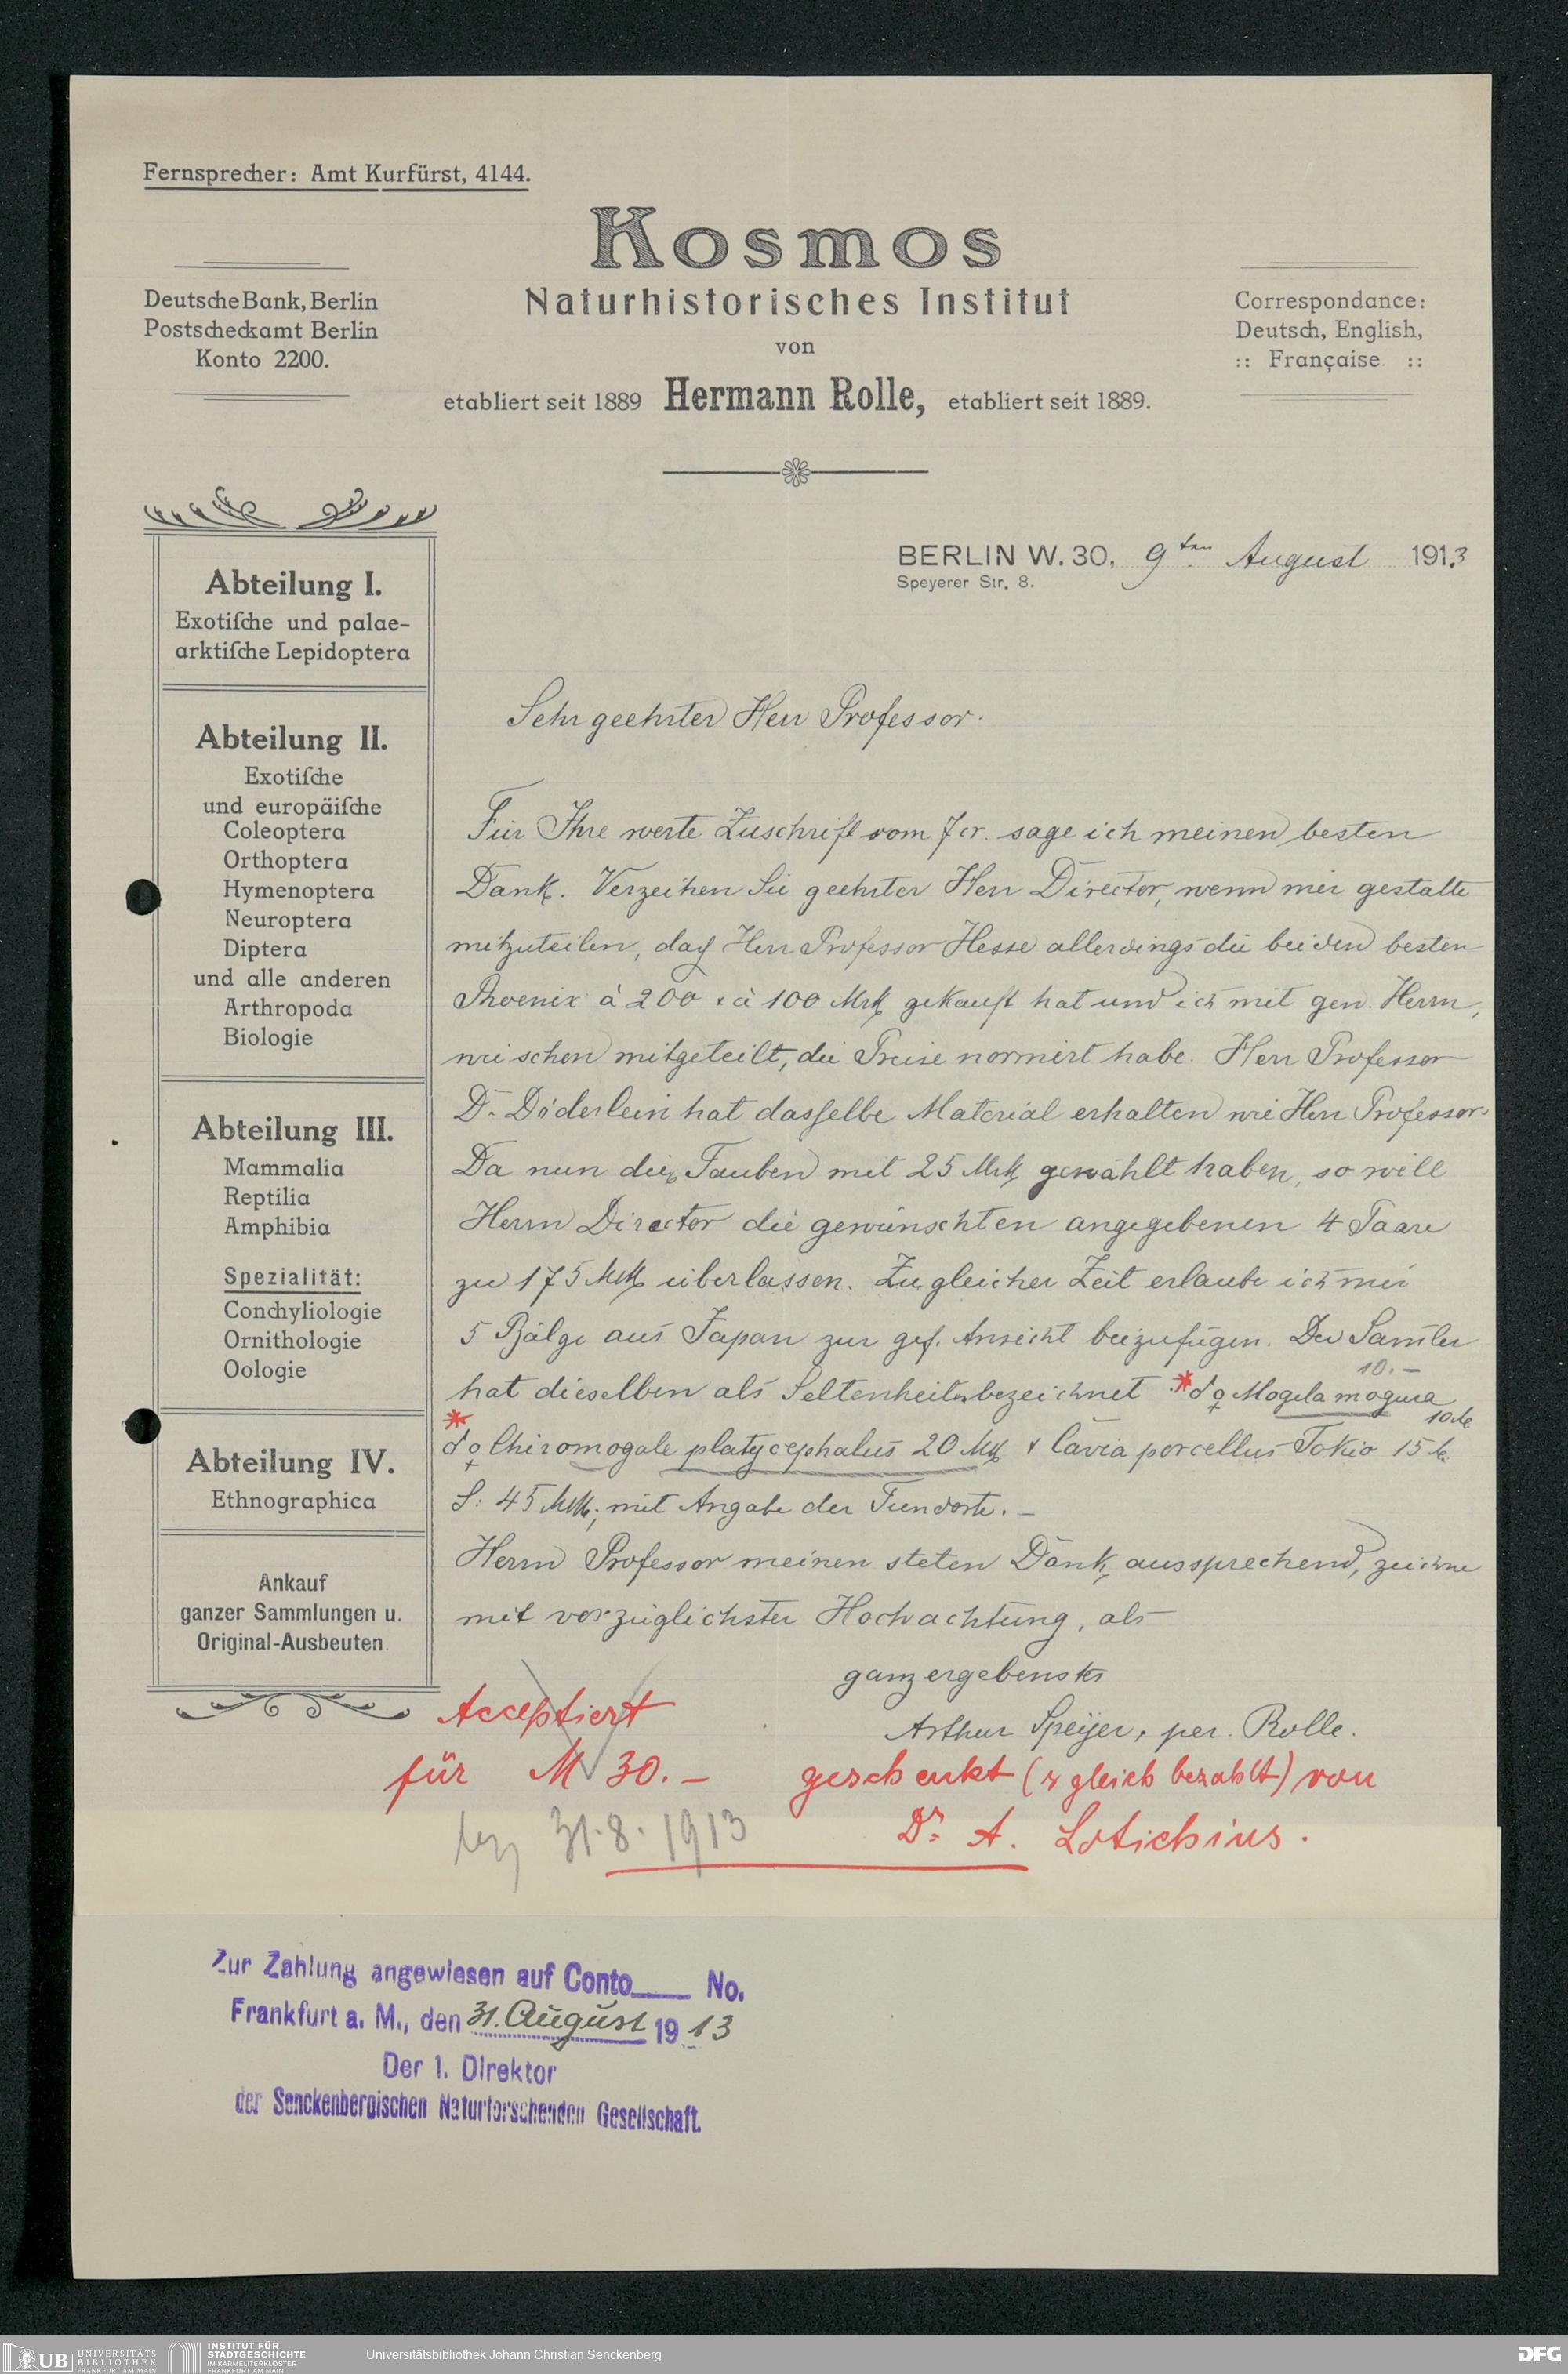 Fernsprecher: Amt Kurfürst, 4144.
Kosmos
Naturhistorisches Institut
von
etabliert seit 1889 Hermann Rolle, etabliert seit 1889.
Deutsche Bank, Berlin
Postscheckamt Berlin
Konto 2200.
Correspondance:
Deutsch, English,
:: Française ::
BERLIN W. 30, 9ten August 1913
Speyerer Str. 8.
Abteilung I.
Exotiſche und palae-
arktiſche Lepidoptera
Abteilung II.
Exotiſche
und europäiſche
Coleoptera
Orthoptera
Hymenoptera
Neuroptera
Diptera
und alle anderen
Arthropoda
Biologie
Abteilung III.
Mammalia
Reptilia
Amphibia
Spezialität:
Conchyliologie
Ornithologie
Oologie
Abteilung IV.
Ethnographica
Ankauf
ganzer Sammlungen u.
Original-Ausbeuten.
Sehr geehrter Herr Professor.
Für Ihre werte Zuschrift vom 7 cr. sage ich meinen besten
Dank. Verzeihen Sie geehrter Herr Director, wenn mir gestatte
mitzuteilen, daß Herr Professor Hesse allerdings die beiden besten
Phoenix à 200 & à 100 Mrk gekauft hat und ich mit gen. Herrn,
wie schon mitgeteilt, die Preise normirt habe. Herr Professor
Dr. Döderlein hat dasselbe Material erhalten wie Herr Professor.
Da nun die Tauben mit 25 Mrk gewählt haben, so will
Herrn Director die gewünschten angegebenen 4 Paare
zu 175 Mrk überlassen. Zu gleicher Zeit erlaube ich mir
5 Bälge aus Japan zur gef. Ansicht beizufügen. Der Samler
hat dieselben als Seltenheiten bezeichnet. * ♂♀ Mogela mogura 10.–
* ♂♀ Chiromogale platycephalus 20 Mk & Cavia porcellus Tokio 15 M.
S: 45 Mrk; mit Angabe der Fundorte. –
Herrn Professor meinen steten Dank aussprechend, zeichne
mit vorzüglichster Hochachtung, als
ganz ergebenster
Arthur Speyer, per. Rolle.
Acceptiert
für M 30.–
geschenkt (& gleich bezahlt) von
Dr. A. Lotichius.
bez 31.8.1913
Zur Zahlung angewiesen auf Conto____ No.
Frankfurt a. M., den 31. August 1913
Der 1. Direktor
der Senckenbergischen Naturforschenden Gesellschaft.
UB UNIVERSITÄTS
BIBLIOTHEK
FRANKFURT AM MAIN
INSTITUT FÜR
STADTGESCHICHTE
IM KARMELITERKLOSTER
FRANKFURT AM MAIN
Universitätsbibliothek Johann Christian Senckenberg
DFG